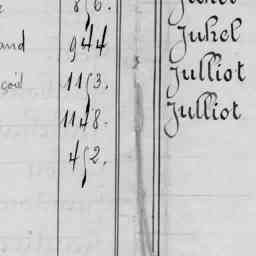 856.
and 944 Juhel
goil 1153. Julliot
1148. Julliot
452.